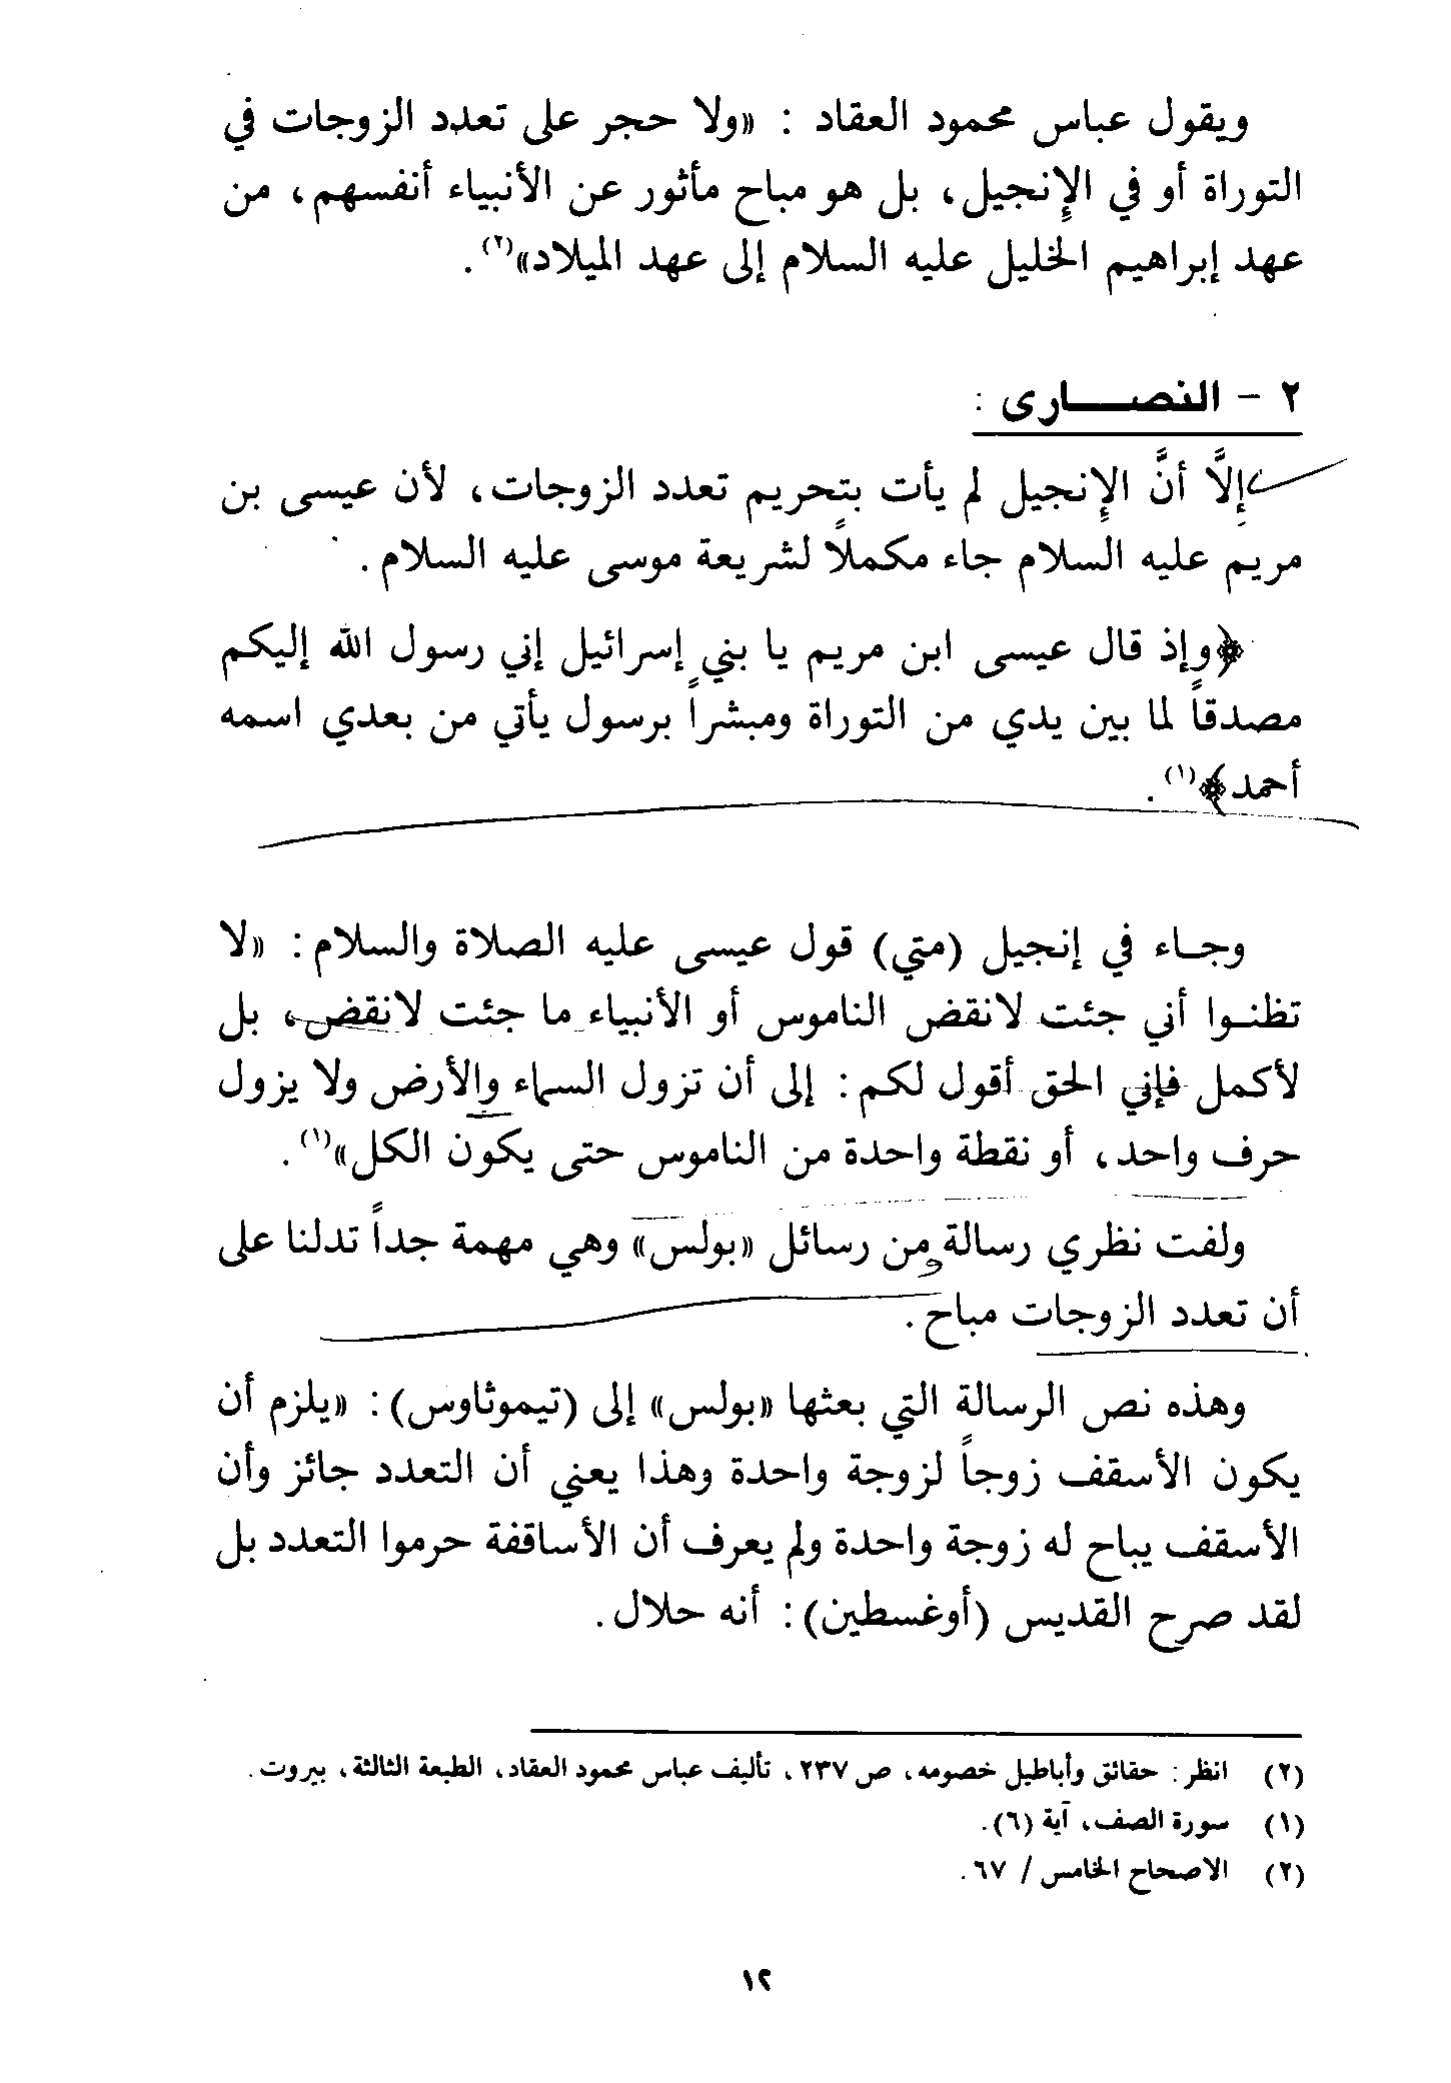 ويقول عباس محمود العقاد : «ولا حجر على تعدد الزوجات في
التوراة أو في الإنجيل، بل هو مباح مأثور عن الأنبياء أنفسهم، من
عهد إبراهيم الخليل عليه السلام إلى عهد الميلاد»(٢).
٢ - النصـــارى :
إلَّا أنَّ الإنجيل لم يأت بتحريم تعدد الزوجات، لأن عيسى بن
مريم عليه السلام جاء مكملاً لشريعة موسى عليه السلام.
﴿وإذ قال عيسى ابن مريم يا بني إسرائيل إني رسول الله إليكم
مصدقاً لما بين يدي من التوراة ومبشراً برسول يأتي من بعدي اسمه
أحمد﴾(١).
وجـاء في إنجيل (متي) قول عيسى عليه الصلاة والسلام: «لا
تظنـوا أني جئت لانقض الناموس أو الأنبياء ما جئت لانقض، بل
لأكمل فإني الحق أقول لكم: إلى أن تزول السماء والأرض ولا يزول
حرف واحد، أو نقطة واحدة من الناموس حتى يكون الكل»(١).
ولفت نظري رسالة من رسائل «بولس» وهي مهمة جداً تدلنا على
أن تعدد الزوجات مباح.
وهذه نص الرسالة التي بعثها «بولس» إلى (تيموثاوس): «يلزم أن
يكون الأسقف زوجاً لزوجة واحدة وهذا يعني أن التعدد جائز وأن
الأسقف يباح له زوجة واحدة ولم يعرف أن الأساقفة حرموا التعدد بل
لقد صرح القديس (أوغسطين): أنه حلال.
(٢) انظر: حقائق وأباطيل خصومه، ص ٢٣٧، تأليف عباس محمود العقاد، الطبعة الثالثة، بيروت.
(١) سورة الصف، آية (٦).
(٢) الاصحاح الخامس / ٦٧.
١٢